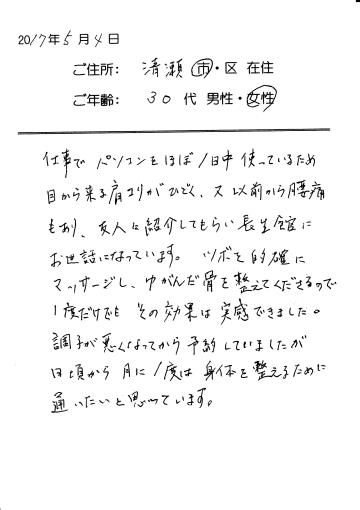 2017年5月4日
ご住所: 清瀬 市・区 在住
ご年齢: 30 代 男性・女性
仕事で パソコンを ほぼ1日中 使っているため
目から来る肩コリがひどく、又 以前から腰痛
もあり、友人に紹介してもらい長生館に
お世話になっています。 ツボを的確に
マッサージし、ゆがんだ骨を整えてくださるので
1度だけでも その効果は実感できました。
調子が悪くなってから予約していましたが
日頃から 月に1度は身体を整えるために
通いたいと思っています。